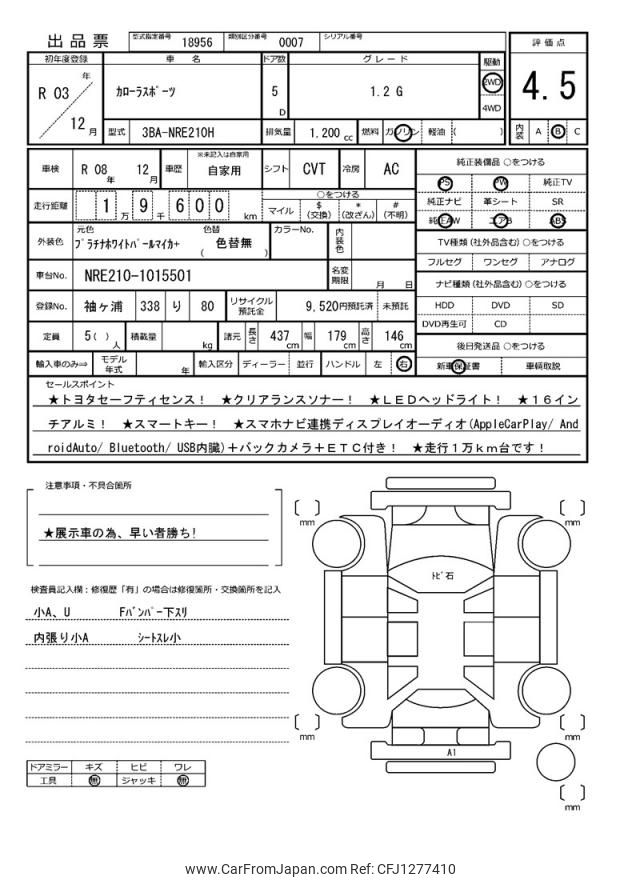 出品票 型式指定番号 18956 類別区分番号 0007 シリアル番号
評価点
4.5
内装 A B C
初年度登録 車名 ドア数 グレード 駆動
R 03 年 12 月
カローラスポーツ 5 D 1.2 G 2WD 4WD
型式 3BA-NRE210H 排気量 1.200 cc 燃料 ガソリン 軽油 ( )
車検 R 08 年 12 月 車歴 ※未記入は自家用 自家用 シフト CVT 冷房 AC
走行距離 1 万 9 千 6 0 0 km
○をつける
マイル $ (交換) * (改ざん) # (不明)
外装色 元色 プラチナホワイトパールマイカ+ 色替 ( 色替無 ) カラーNo. 内装色
車台No. NRE210-1015501 名変期限 月 日
登録No. 袖ヶ浦 338 り 80 リサイクル預託金 9,520円預託済 未預託
定員 5( ) 人 積載量 kg 諸元 長さ 437 cm 幅 179 cm 高さ 146 cm
輸入車のみ⇒ モデル年式 年 輸入区分 ディーラー 並行 ハンドル 左 右
純正装備品 ○をつける
PS PW 純正TV
純正ナビ 革シート SR
純正AW エアB ABS
TV種類 (社外品含む) ○をつける
フルセグ ワンセグ アナログ
ナビ種類 (社外品含む) ○をつける
HDD DVD SD
DVD再生可 CD
後日発送品 ○をつける
新車保証書 車輌取説
セールスポイント
★トヨタセーフティセンス! ★クリアランスソナー! ★LEDヘッドライト! ★16イン
チアルミ! ★スマートキー! ★スマホナビ連携ディスプレイオーディオ(AppleCarPlay/ And
roidAuto/ Bluetooth/ USB内臓)+バックカメラ+ETC付き! ★走行1万km台です!
注意事項・不具合箇所
★展示車の為、早い者勝ち!
検査員記入欄:修復歴「有」の場合は修復箇所・交換箇所を記入
小A、U Fバンパー下スリ
内張り小A シートスレ小
ドアミラー キズ ヒビ ワレ
工具 無 ジャッキ 無
mm
mm
トビ石
mm
mm
A1
mm
www.CarFromJapan.com Ref: CFJ1277410